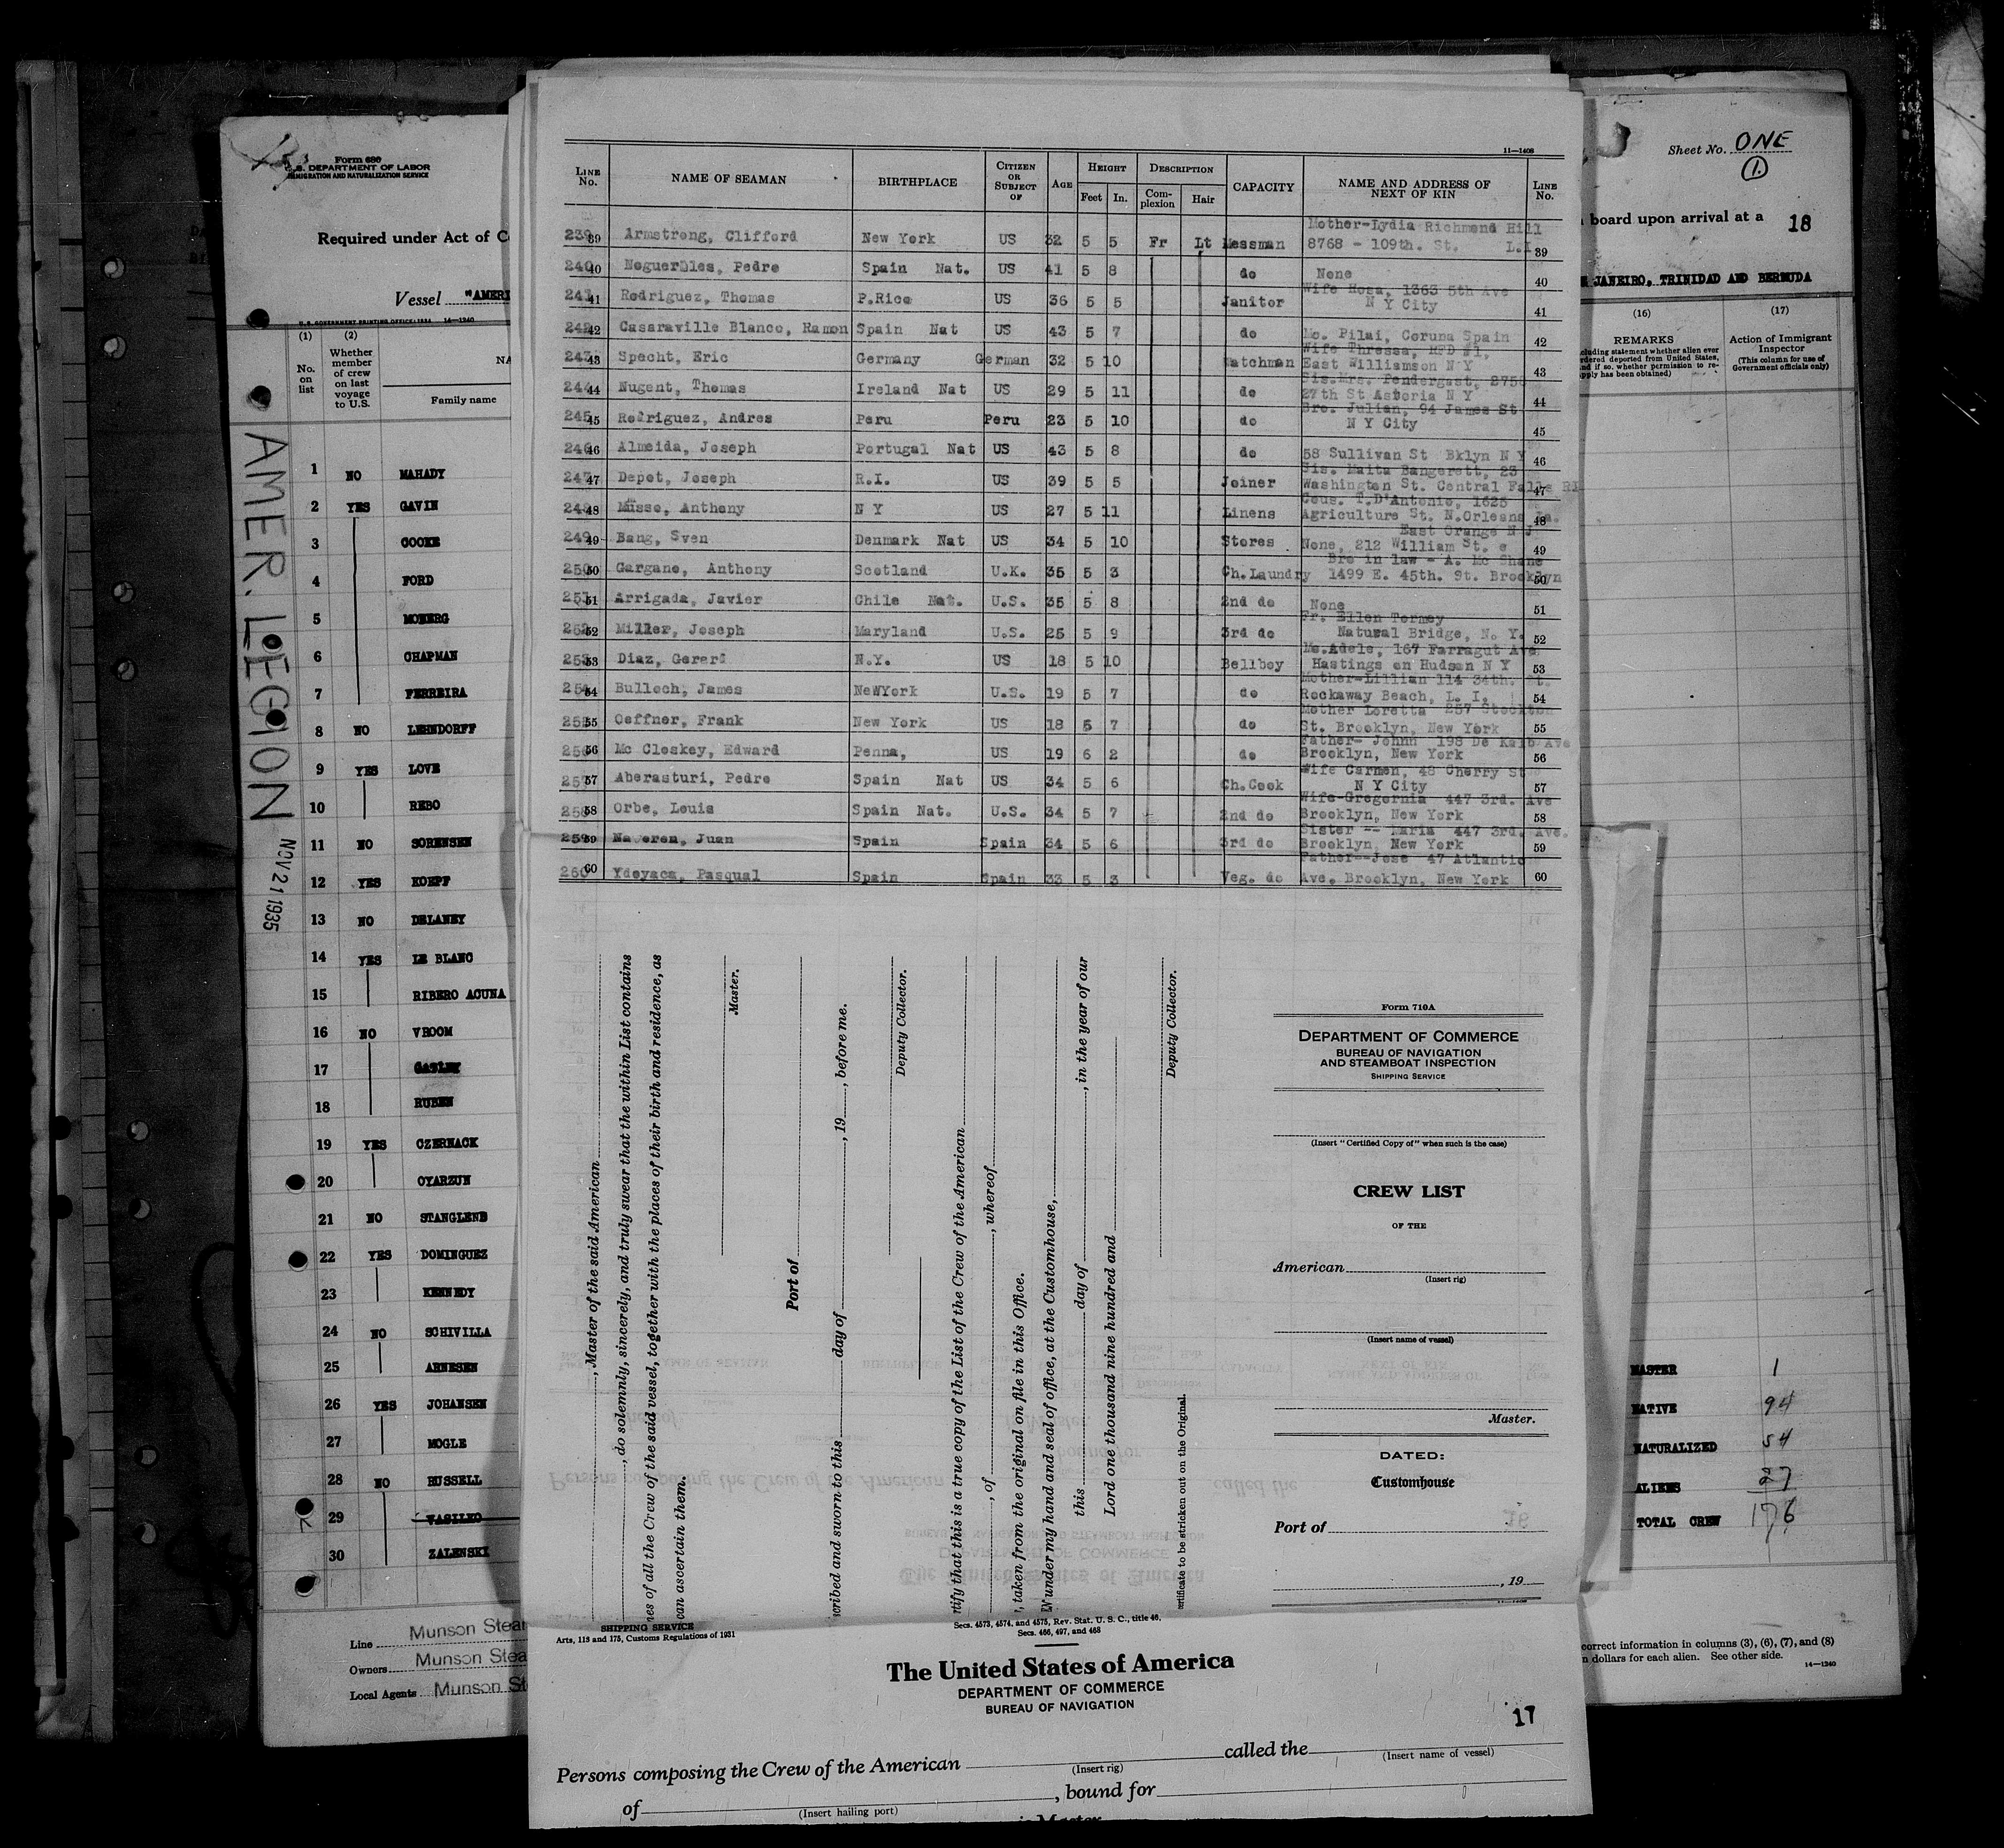 Form 680
U.S. DEPARTMENT OF LABOR
IMMIGRATION AND NATURALIZATION SERVICE
Required under Act of C
Vessel "AMERI
U.S. GOVERNMENT PRINTING OFFICE: 1934 14—1240
(1) (2)
No. on list
Whether member of crew on last voyage to U.S.
NA
Family name
AMER. LEGION
NOV 21 1935
1 NO MAHADY
2 YES GAVIN
3 COOKE
4 FORD
5 MOBERG
6 CHAPMAN
7 FERREIRA
8 NO LEHNDORFF
9 YES LOVE
10 REBO
11 NO SORENSEN
12 YES KOEPF
13 NO DELANEY
14 YES LE BLANC
15 RIBERO ACUNA
16 NO VROOM
17 GATLEY
18 RUBEN
19 YES CZERNACK
20 OYARZUN
21 NO STANGLEND
22 YES DOMINGUEZ
23 KENNEDY
24 NO SCHIVILLA
25 ARNESEN
26 YES JOHANSEN
27 MOGLE
28 NO RUSSELL
29 VASILKO
30 ZALENSKI
Line Munson Stea
Owners Munson Stea
Local Agents Munson St
11—1408
LINE No. NAME OF SEAMAN BIRTHPLACE CITIZEN OR SUBJECT OF AGE HEIGHT Feet In. DESCRIPTION Complexion Hair CAPACITY NAME AND ADDRESS OF NEXT OF KIN LINE No.
239 39 Armstrong, Clifford New York US 32 5 5 Fr Lt Messman Mother-Lydia Richmond Hill
8768 - 109th. St. L.I. 39
240 40 Noguerbles, Pedro Spain Nat. US 41 5 8 do None 40
241 41 Rodriguez, Thomas P.Rico US 36 5 5 Janitor Wife Rosa, 1363 5th Ave
N Y City 41
242 42 Casaraville Blanco, Ramon Spain Nat US 43 5 7 do Mo. Pilai, Coruna Spain 42
243 43 Specht, Eric Germany German 32 5 10 Watchman Wife Thressa, RFD #1,
East Williamson N Y 43
244 44 Nugent, Thomas Ireland Nat US 29 5 11 do Sis.Mrs. Pendergast, 2750
27th St Astoria N Y 44
245 45 Rodriguez, Andres Peru Peru 23 5 10 do Bro. Julian, 94 James St
N Y City 45
246 46 Almeida, Joseph Portugal Nat US 43 5 8 do 58 Sullivan St Bklyn N Y 46
247 47 Depot, Joseph R.I. US 39 5 5 Joiner Sis. Maita Bangerett, 23
Washington St. Central Falls RI 47
248 48 Musso, Anthony N Y US 27 5 11 Linens Cous. T.D'Antonio, 1625
Agriculture St. N.Orleans La. 48
249 49 Bang, Sven Denmark Nat US 34 5 10 Stores East Orange N J
None, 212 William St. e 49
250 50 Gargano, Anthony Scotland U.K. 35 5 3 Ch.Laundry Bro in law - A. Mc Shane
1499 E. 45th. St. Brooklyn 50
251 51 Arrigada, Javier Chile Nat. U.S. 35 5 8 2nd do None 51
252 52 Miller, Joseph Maryland U.S. 25 5 9 3rd do Fr. Ellen Tormey
Natural Bridge, N. Y. 52
253 53 Diaz, Gerard N.Y. US 18 5 10 Bellboy Mo.Adele, 167 Farragut Ave
Hastings on Hudson N Y 53
254 54 Bulloch, James NeWYork U.S. 19 5 7 do Mother-Lillian 114 34th. St.
Rockaway Beach, L. I. 54
255 55 Oeffner, Frank New York US 18 5 7 do Mother Loretta 257 Stockton
St. Brooklyn, New York 55
256 56 Mc Closkey, Edward Penna, US 19 6 2 do Father- Johnn 198 De Kalb Ave
Brooklyn, New York 56
257 57 Aberasturi, Pedro Spain Nat US 34 5 6 Ch.Cook Wife Carmen, 48 Cherry St
N Y City 57
258 58 Orbe, Louis Spain Nat. U.S. 34 5 7 2nd do Wife-Gregornia 447 3rd. Ave
Brooklyn, New York 58
259 59 Naveren, Juan Spain Spain 34 5 6 3rd do Sister -- Maria 447 3rd. Ave.
Brooklyn, New York 59
260 60 Ydoyaca, Pasqual Spain Spain 33 5 3 Veg. do Father--Jose 47 Atlantic
Ave. Brooklyn, New York 60
, Master of the said American
, do solemnly, sincerely, and truly swear that the within List contains
nes of all the Crew of the said vessel, together with the places of their birth and residence, as
can ascertain them.
Master.
Port of
cribed and sworn to this day of , 19 , before me.
Deputy Collector.
rtify that this is a true copy of the List of the Crew of the American
, of , whereof
, taken from the original on file in this Office.
under my hand and seal of office, at the Customhouse,
this day of , in the year of our
Lord one thousand nine hundred and
Deputy Collector.
rtificate to be stricken out on the Original.
Form 710A
DEPARTMENT OF COMMERCE
BUREAU OF NAVIGATION
AND STEAMBOAT INSPECTION
SHIPPING SERVICE
(Insert "Certified Copy of" when such is the case)
CREW LIST
OF THE
American
(Insert rig)
(Insert name of vessel)
Master.
DATED:
Customhouse
Port of
, 19
SHIPPING SERVICE
Arts, 118 and 175, Customs Regulations of 1931
Secs. 4573, 4574, and 4575, Rev. Stat. U. S. C., title 46,
Secs. 466, 497, and 468
The United States of America
DEPARTMENT OF COMMERCE
BUREAU OF NAVIGATION
17
Persons composing the Crew of the American called the
(Insert rig) (Insert name of vessel)
of , bound for
(Insert hailing port)
is Master
Sheet No. ONE
1.
board upon arrival at a 18
JANEIRO, TRINIDAD AND BERMUDA
(16) (17)
REMARKS
cluding statement whether alien ever
rdered deported from United States,
nd if so, whether permission to re-
pply has been obtained)
Action of Immigrant Inspector
(This column for use of Government officials only)
MASTER 1
NATIVE 94
NATURALIZED 54
ALIENS 27
TOTAL CREW 176
correct information in columns (3), (6), (7), and (8)
n dollars for each alien. See other side.
14—1240